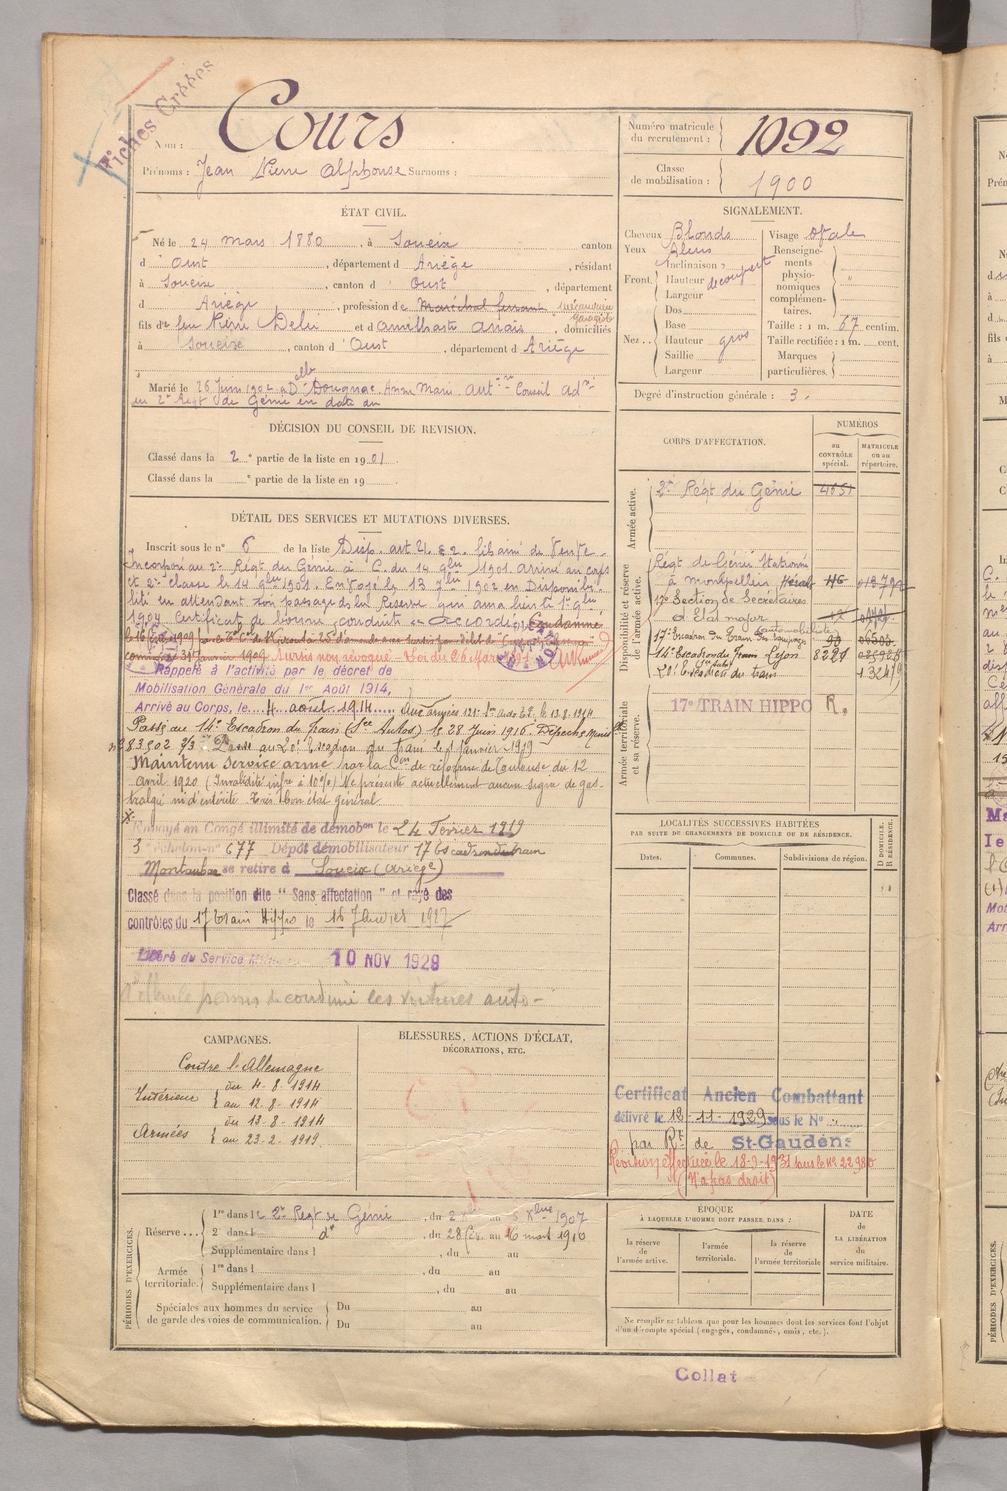 Fiches Créées
Nom : Cours
Prénoms : Jean Pierre Alphonse Surnoms :
Numéro matricule du recrutement : 1092
Classe de mobilisation : 1900
ÉTAT CIVIL.
Né le 24 mars 1880, à Soueix canton
d'Oust, département d Ariège, résidant
à Soueix, canton d'Oust, département
d Ariège, profession de Maréchal ferrant mécanicien garagiste
fils de feu Pierre Delu et d'amilhastre anaïs, domiciliés
à Soueix, canton d'Oust, département d Ariège
Marié le 26 Juin 1902 à Dlle Dougnac Anne Marie. Autre Conseil adon
du 2e Régt de Génie en date du
SIGNALEMENT.
Cheveux Blonds
Yeux Bleus
Front. Inclinaison
Hauteur découvert
Largeur
Nez... Dos
Base
Hauteur gros
Saillie
Largeur
Visage ovale
Renseignements physionomiques complémentaires.
Taille : 1 m. 67 centim.
Taille rectifiée : 1 m. cent.
Marques particulières.
Degré d'instruction générale : 3.
DÉCISION DU CONSEIL DE REVISION.
Classé dans la 2e partie de la liste en 1901.
Classé dans la e partie de la liste en 19
CORPS D'AFFECTATION.
NUMÉROS
au CONTRÔLE spécial.
MATRICULE ou au répertoire.
Armée active.
2e Régt du Génie 4651
Disponibilité et réserve de l'armée active.
Régt de Génie Stationné
à Montpellier Hérault
17e Section de Secrétaires
d'Etat major
17e Escadron du Train des équipages automobiliste
14e Escadron du Train Lyon
20e Escadron du train
Armée territoriale et sa réserve.
17e TRAIN HIPPO R.
DÉTAIL DES SERVICES ET MUTATIONS DIVERSES.
Inscrit sous le n° 6 de la liste Disp. art 21 § 2 fils aîné de Veuve.
Incorporé au 2e Régt du Génie à C. du 14 9bre 1901. arrivé au corps
et 2e classe le 14 9bre 1901. Envoyé le 13 7bre 1902 en Disponibi-
lité en attendant son passage dans la Réserve qui aura lieu le 1er 9bre
1904 Certificat de bonne conduite accordé. Condamné
Sursis non révoqué - Loi du 26 Mars
Rappelé à l'activité par le décret de
Mobilisation Générale du 1er Août 1914,
Arrivé au Corps, le 4 août 1914. Aux armées le 13.8.1914
Passé au 14e Escadron du Train (Sce Autos) le 28 Juin 1916. Dépêche Minist.
n° 283502 3/3 Passé au 20e Escadron du Train le 1 Janvier 1919
Maintenu Service armé par la Con de réforme de Toulouse du 12
avril 1920 (Invalidité infre à 10%) Ne présente actuellement aucun signe de gas-
tralgie ni d'entérite. Très bon état général.
Envoyé en Congé illimité de démobon le 24 Février 1919
3e échelon n° 677 Dépôt démobilisateur 17 Escadron du train
Montauban se retire à Soueix (Ariège)
Classé dans la position dite "Sans affectation" et rayé des
contrôles du 17 train Hippo le 15 Janvier 1927
Libéré du Service Militaire 10 NOV 1928
permis de conduire les voitures auto-
LOCALITÉS SUCCESSIVES HABITÉES
PAR SUITE DE CHANGEMENTS DE DOMICILE OU DE RÉSIDENCE.
Dates.
Communes.
Subdivisions de région.
D DOMICILE. R RÉSIDENCE.
Certificat Ancien Combattant
délivré le 12-11-1929 sous le N°
par Rt de St-Gaudens
(N'a pas droit)
CAMPAGNES.
Contre l'Allemagne
Intérieur du 4-8-1914
au 12-8-1914
Armées du 13-8-1914
au 23-2-1919
BLESSURES, ACTIONS D'ÉCLAT,
DÉCORATIONS, ETC.
PÉRIODES D'EXERCICES.
Réserve... 1re dans le 2e Régt de Génie, du au Xbre 1907
2e dans l do, du 28 au 16 mars 1910
Supplémentaire dans l, du au
Armée territoriale. 1re dans l, du au
Supplémentaire dans l, du au
Spéciales aux hommes du service de garde des voies de communication. Du au
Du au
ÉPOQUE
À LAQUELLE L'HOMME DOIT PASSER DANS :
la réserve de l'armée active.
l'armée territoriale.
la réserve de l'armée territoriale
DATE de LA LIBÉRATION du service militaire.
Ne remplir ce tableau que pour les hommes dont les services font l'objet
d'un décompte spécial (engagés, condamnés, omis, etc.).
Collat